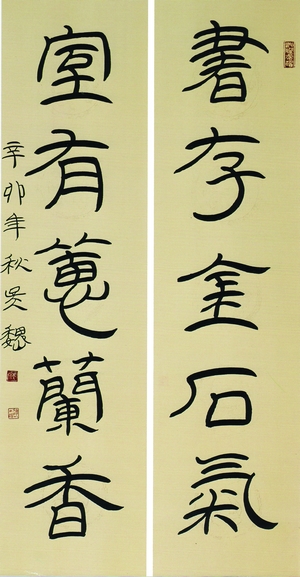 書存金石氣
室有蕙蘭香
辛卯年秋吴魏